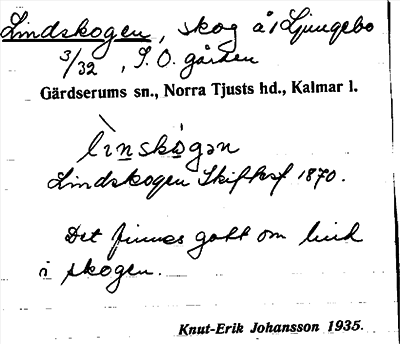 Lindskogen, skog å Ljungebo
3/32, S. O. gården
Gärdserums sn., Norra Tjusts hd., Kalmar l.
lìnskògən
Lindskogen Skifteskf 1870.
Det finnes gott om lind
i skogen.
Knut-Erik Johansson 1935.